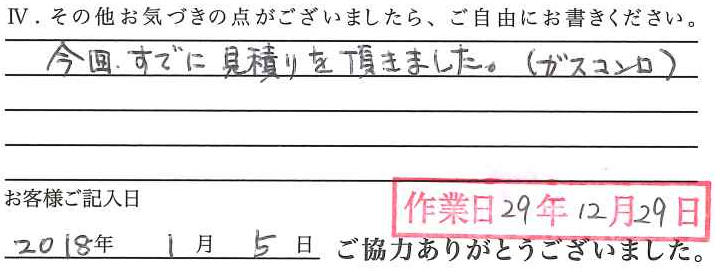 Ⅳ．その他お気づきの点がございましたら、ご自由にお書きください。
今回、すでに見積りを頂きました。（ガスコンロ）
お客様ご記入日
作業日29年12月29日
2018年 1月 5日 ご協力ありがとうございました。